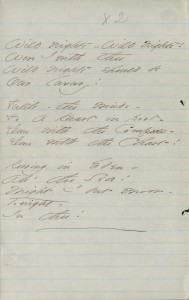 82
Wild nights - Wild nights!
Were I with thee
Wild nights should be
Our luxury!
Futile - the winds -
To a Heart in port -
Done with the Compass -
Done with the Chart!
Rowing in Eden -
Ah - the Sea!
Might I but moor -
Tonight -
In thee!